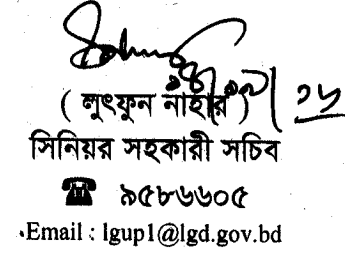 ( লুৎফুন নাহার )
সিনিয়র সহকারী সচিব
☎ ৯৫৮৬৬০৫
Email : lgup1@lgd.gov.bd